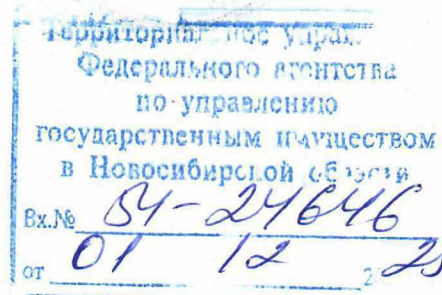 Территориальное управ
Федерального агентства
по управлению
государственным имуществом
в Новосибирской области
Вх.№ 54-24646
от 01 12 2 25